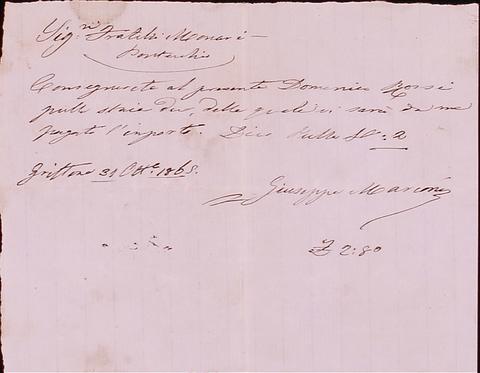 Sig.ri Fratelli Monari
Pontecchio
Consegnerete al presente Domenico Rossi
pulle staia due, delle quali vi sarà da me
pagato l'importo. Dico Pulle St.a 2
Griffone 31 Ott.e 1865.
Giuseppe Marconi
£ 2:80